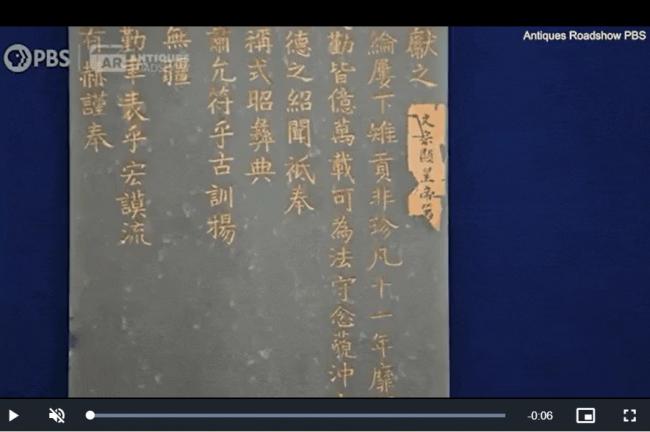 Antiques Roadshow PBS
PBS
AR ANTIQUES ROADSHOW
獻之
文宗顯皇帝
綸屢下雉貢非珍凡十一年靡
勤皆億萬載可為法守念藐沖
德之紹聞祇奉
稱式昭彝典
肅允符乎古訓揚
無疆
勤聿表乎宏謨流
有赫謹奉
-0:06